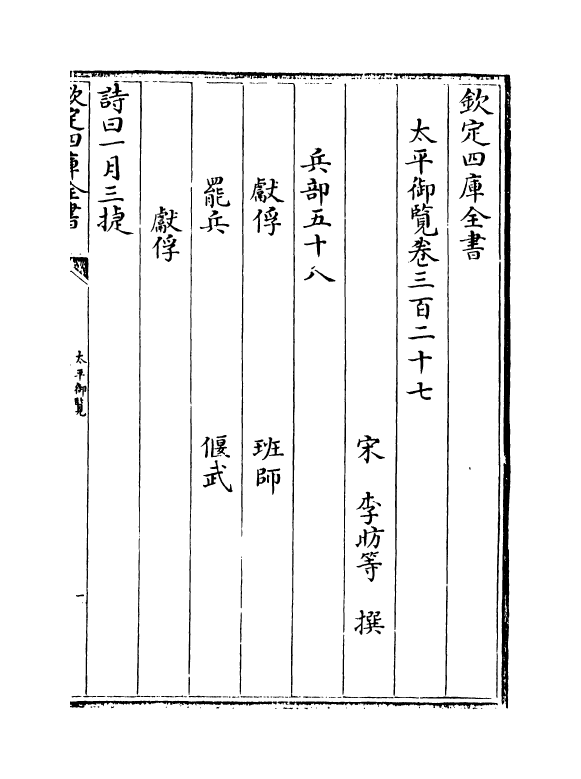 欽定四庫全書
太平御覽卷三百二十七
宋 李昉等 撰
兵部五十八
獻俘 班師
罷兵 偃武
獻俘
詩曰一月三捷
欽定四庫全書 太平御覽 一